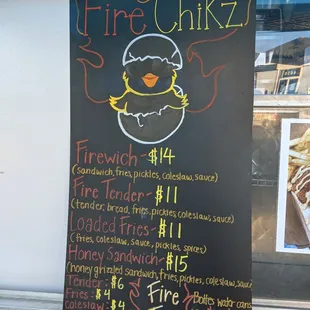 Fire Chikz
Firewich - $14
(sandwich, fries, pickles, coleslaw, sauce)
Fire Tender - $11
(tender, bread, fries, pickles, coleslaw, sauce)
Loaded Fries - $11
(fries, coleslaw, sauce, pickles, spices)
Honey Sandwich - $15
(honey grizzled sandwich, fries, pickles, coleslaw, sauce
Tender: $6
Fries: $4
Coleslaw: $4
Fire
Bottles water cans